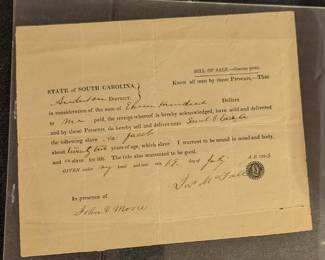 BILL OF SALE.
STATE OF SOUTH CAROLINA, Know all men by these Presents, That
Anderson DISTRICT.
in consideration of the sum of Eleven Hundred Dollars
to me paid, the receipt whereof is hereby acknowledged, have sold and delivered
and by these Presents, do hereby sell and deliver unto
the following slave Jacob
about twenty two years of age, which slave I warrant to be sound in mind and body,
and a slave for life. The title also warranted to be good.
GIVEN under my hand and seal this 18 day of July A. D. 185
In presence of
John V Moore